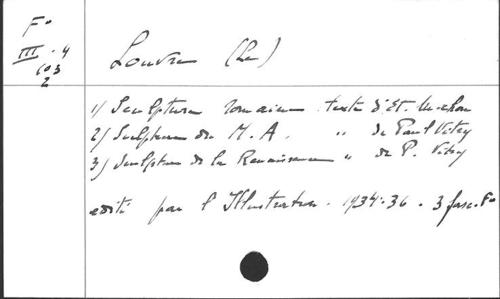 F°
III.4
103
2
Louvre (Le)
1/ Sculpture romaine texte d'Et. Michon
2/ Sculpture du M. A. " de Paul Vitry
3/ Sculpture de la Renaissance " de P. Vitry
edité par l'Illustration. 1934-36. 3 fasc. F°